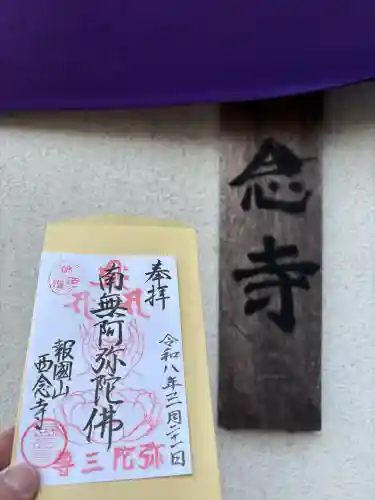 奉拝
南無阿弥陀佛
令和八年三月二十一日
報國山
西念寺
弥陀三尊
念寺